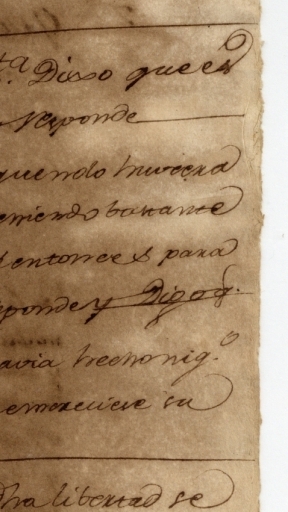 ta. Dixo que es
responde
quendo huviera
eniendo bastante
entonces para
sponde y Digo q.
avia hecho nig.o
emereciese su
dha libertad se